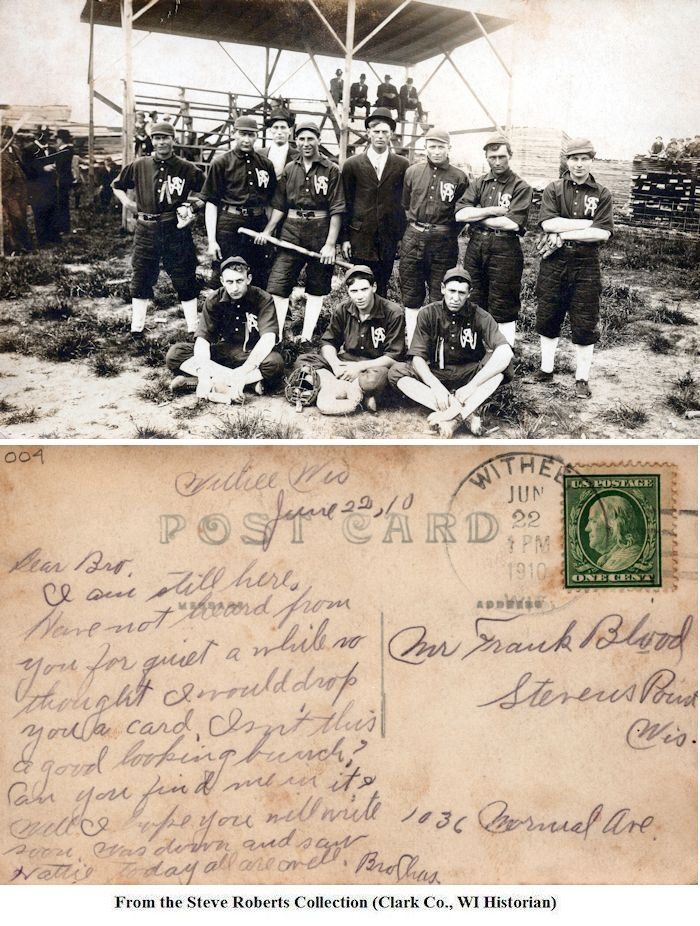 004
Withee Wis
June 22, 10
POST CARD
WITHEE
JUN
22
1 PM
1910
WIS.
U.S. POSTAGE
ONE CENT
MESSAGE
ADDRESS
Dear Bro.
I am still here.
Have not heard from
you for quiet a while so
thought I would drop
you a card. Isn't this
a good looking bunch?
Can you find me in it?
Well I hope you will write
soon. Was down and saw
Hattie today all are well. Bro Chas.
Mr Frank Blood
Stevens Point
Wis.
1036 Normal Ave.
From the Steve Roberts Collection (Clark Co., WI Historian)